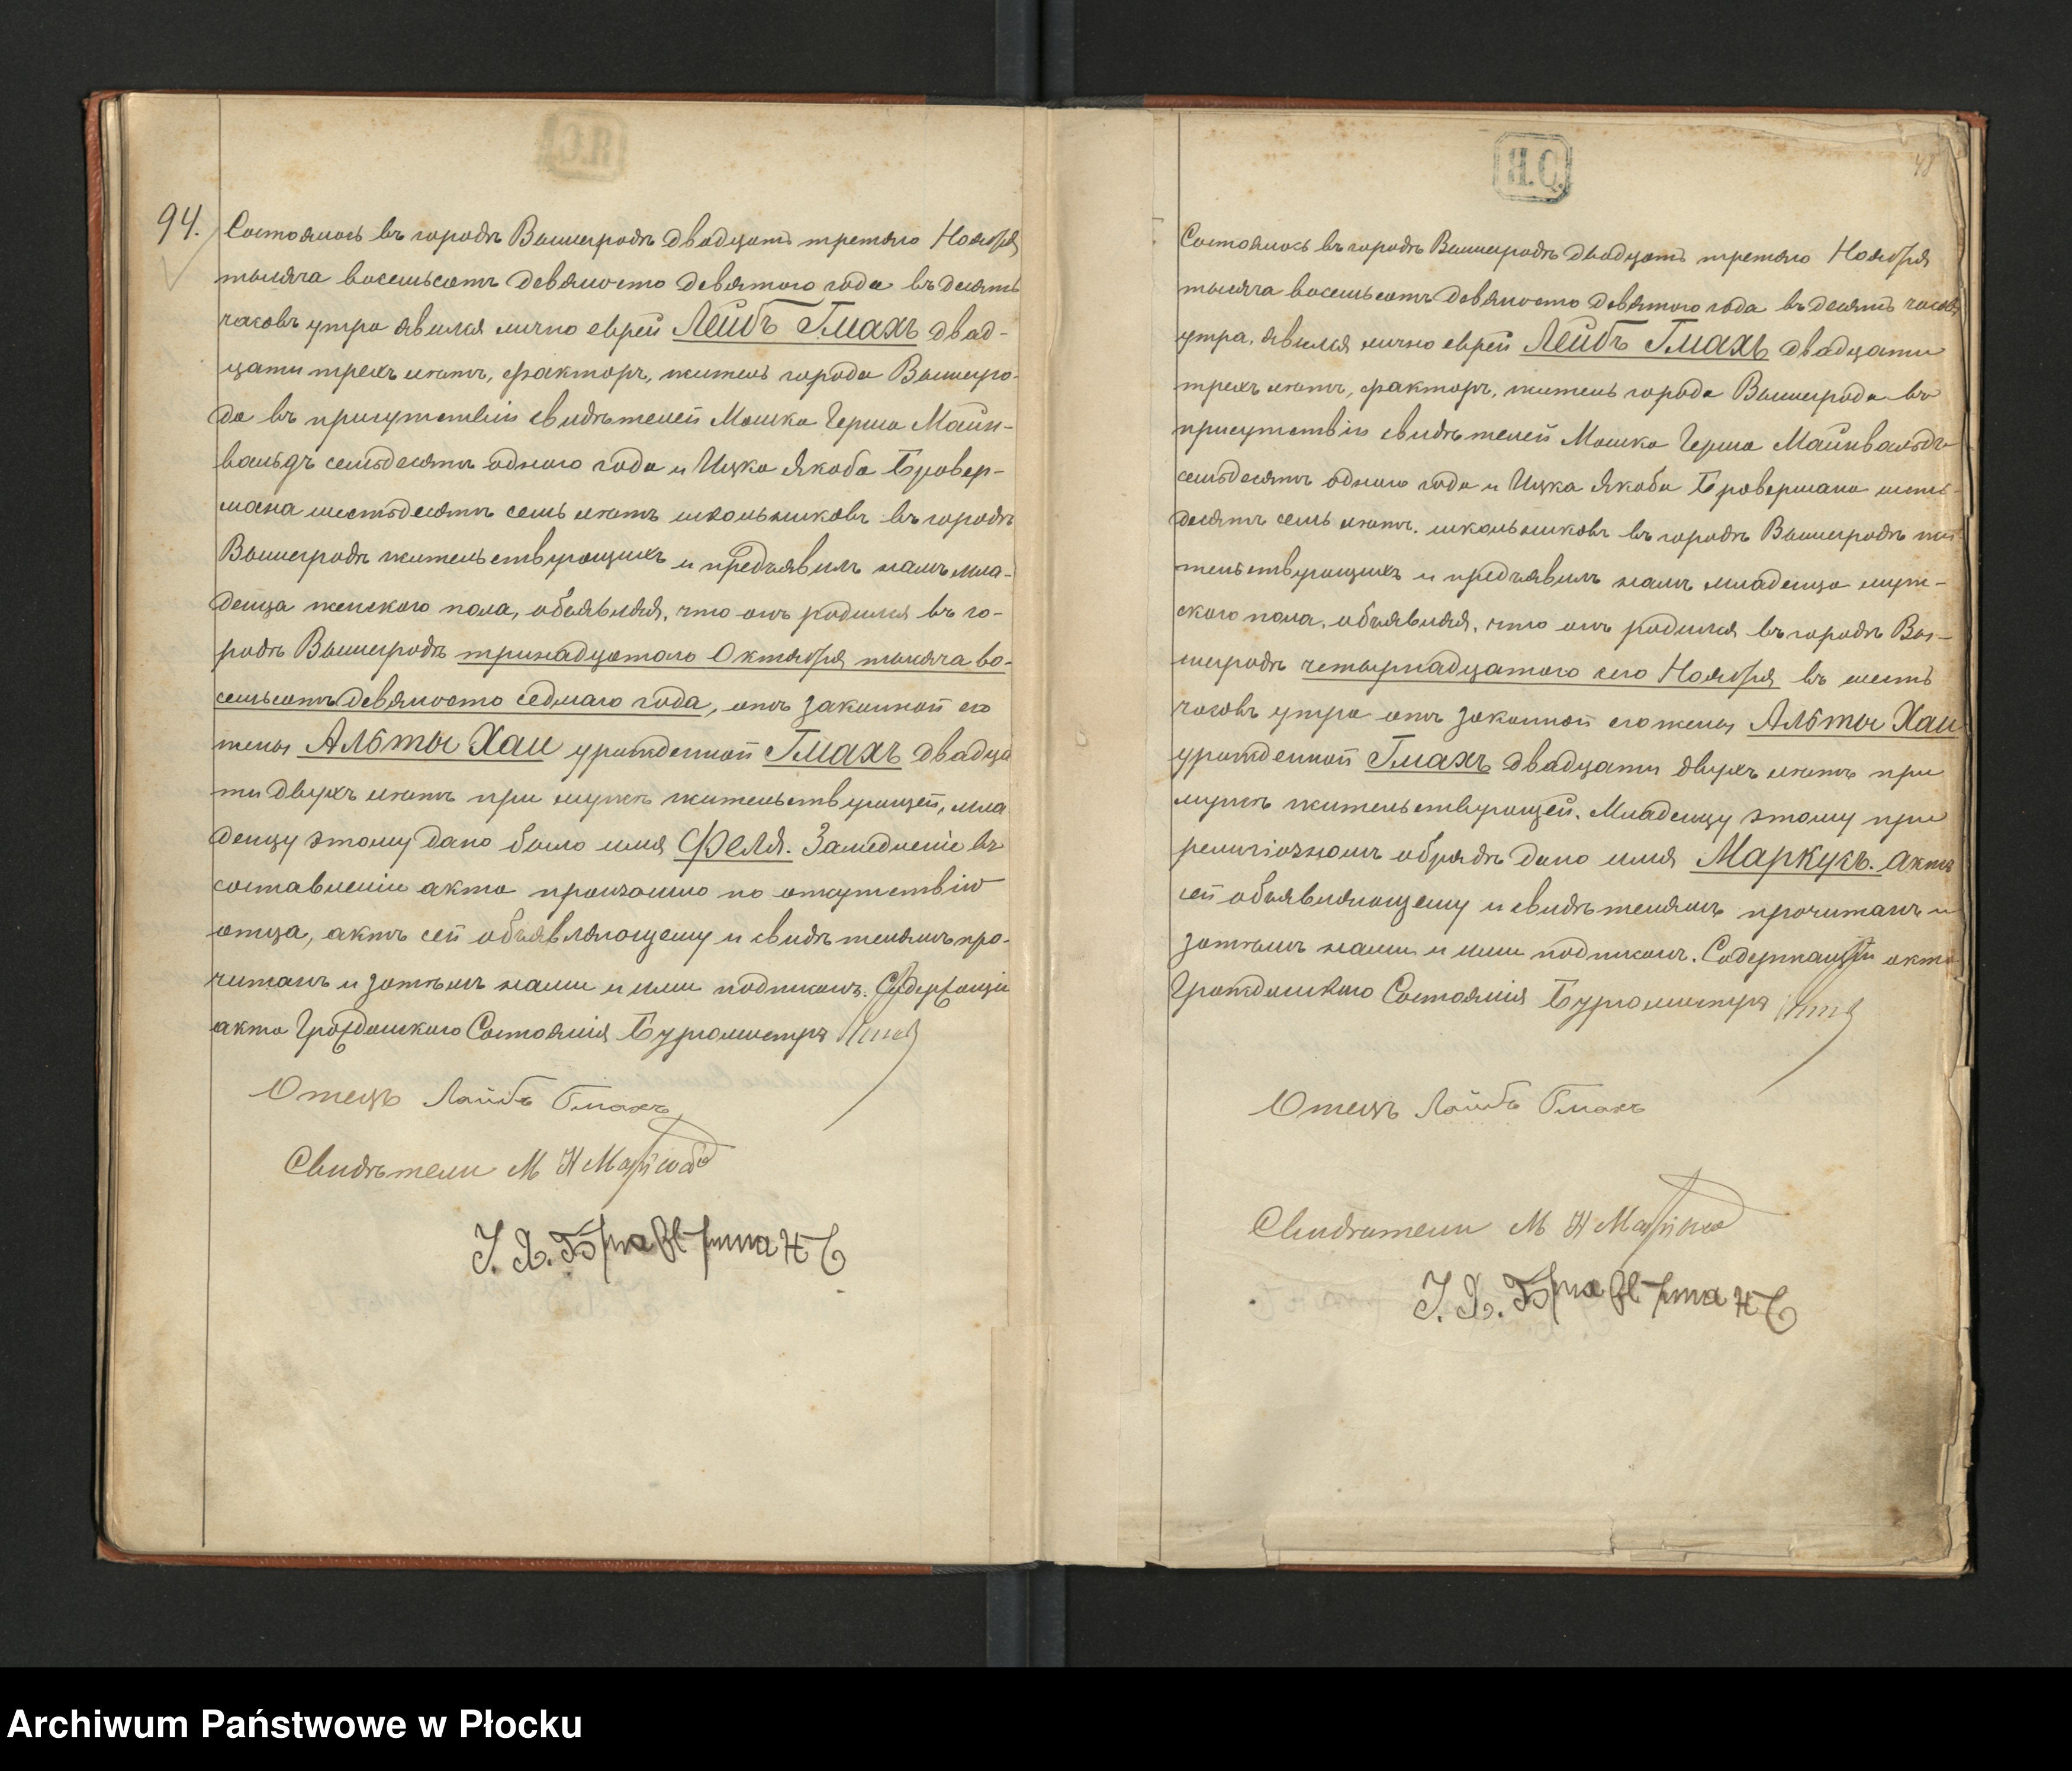 94.
Состоялось въ городѣ Вышегродѣ двадцать третяго Ноября
тысяча восемьсотъ девяносто девятого года въ десять
часовъ утра явился лично еврей Лейбъ Гмахъ двад-
цати трехъ лѣтъ, факторъ, житель города Вышегро-
да въ присутствіи свидѣтелей Мошка Герша Майн-
вальдъ семьдесятъ одного года и Ицка Якоба Бровер-
мана шестьдесятъ семь лѣтъ школьниковъ въ городѣ
Вышегродѣ жительствующихъ и предъявилъ намъ мла-
денца женского пола, объявляя, что онъ родился въ го-
родѣ Вышегродѣ тринадцатого Октября тысяча во-
семьсотъ девяносто седмаго года, отъ законной его
жены Альты Хаи урожденной Гмахъ двадца
ти двухъ лѣтъ при мужѣ жительствующей, мла
денцу этому дано было имя Феля. Замедленіе въ
составленіи акта произошло по отсутствію
отца, актъ сей объявляющему и свидѣтелямъ про-
читанъ и затѣмъ нами и ими подписанъ. Содержащій
акта Гражданского Состоянія Бургомистръ
Отецъ Лайбъ Гмахъ
Свидѣтели М Н
I. Я.
Н.С.
48
Состоялось въ городѣ Вышегродѣ двадцать третяго Ноября
тысяча восемьсотъ девяносто девятого года въ десять часовъ
утра, явился лично еврей Лейбъ Гмахъ двадцати
трехъ лѣтъ, факторъ, житель города Вышегрода въ
присутствіи свидѣтелей Мошка Герша Майнвальдъ
семьдесятъ одного года и Ицка Якоба Бровермана шесть-
десятъ семь лѣтъ. школьниковъ въ городѣ Вышегродѣ жи
тельствующихъ и предъявилъ намъ младенца муж-
ского пола, объявляя, что онъ родился въ городѣ Вы-
шегродѣ четырнадцатого сего Ноября въ шесть
часовъ утра отъ законной его жены Альты Хаи
урожденной Гмахъ двадцати двухъ лѣтъ при
мужѣ жительствующей. Младенцу этому при
религіозномъ обрядѣ дано имя Маркусъ. Актъ
сей объявляющему и свидѣтелямъ прочитанъ и
затѣмъ нами и ими подписанъ. Содержащій акта
Гражданского Состоянія Бургомистръ
Отецъ Лайбъ Гмахъ
Свидѣтели М Н
I. Я.
Archiwum Państwowe w Płocku